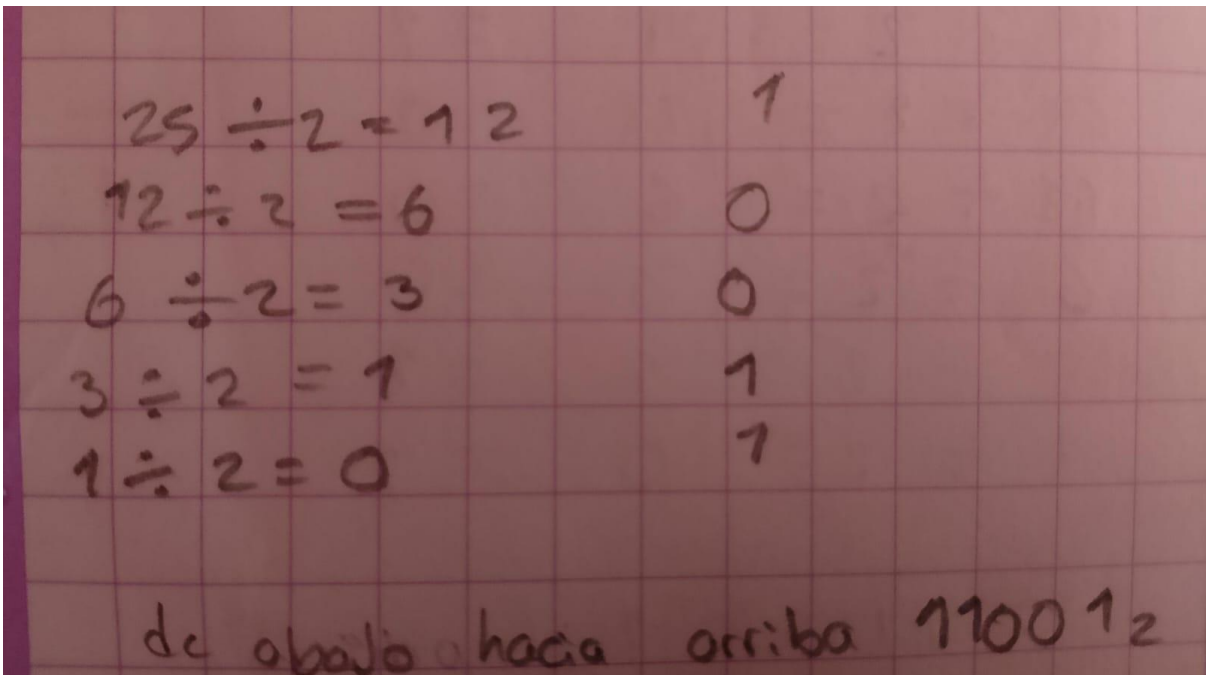 25 ÷ 2 = 12 1
12 ÷ 2 = 6 0
6 ÷ 2 = 3 0
3 ÷ 2 = 1 1
1 ÷ 2 = 0 1
de abajo hacia arriba 11001₂